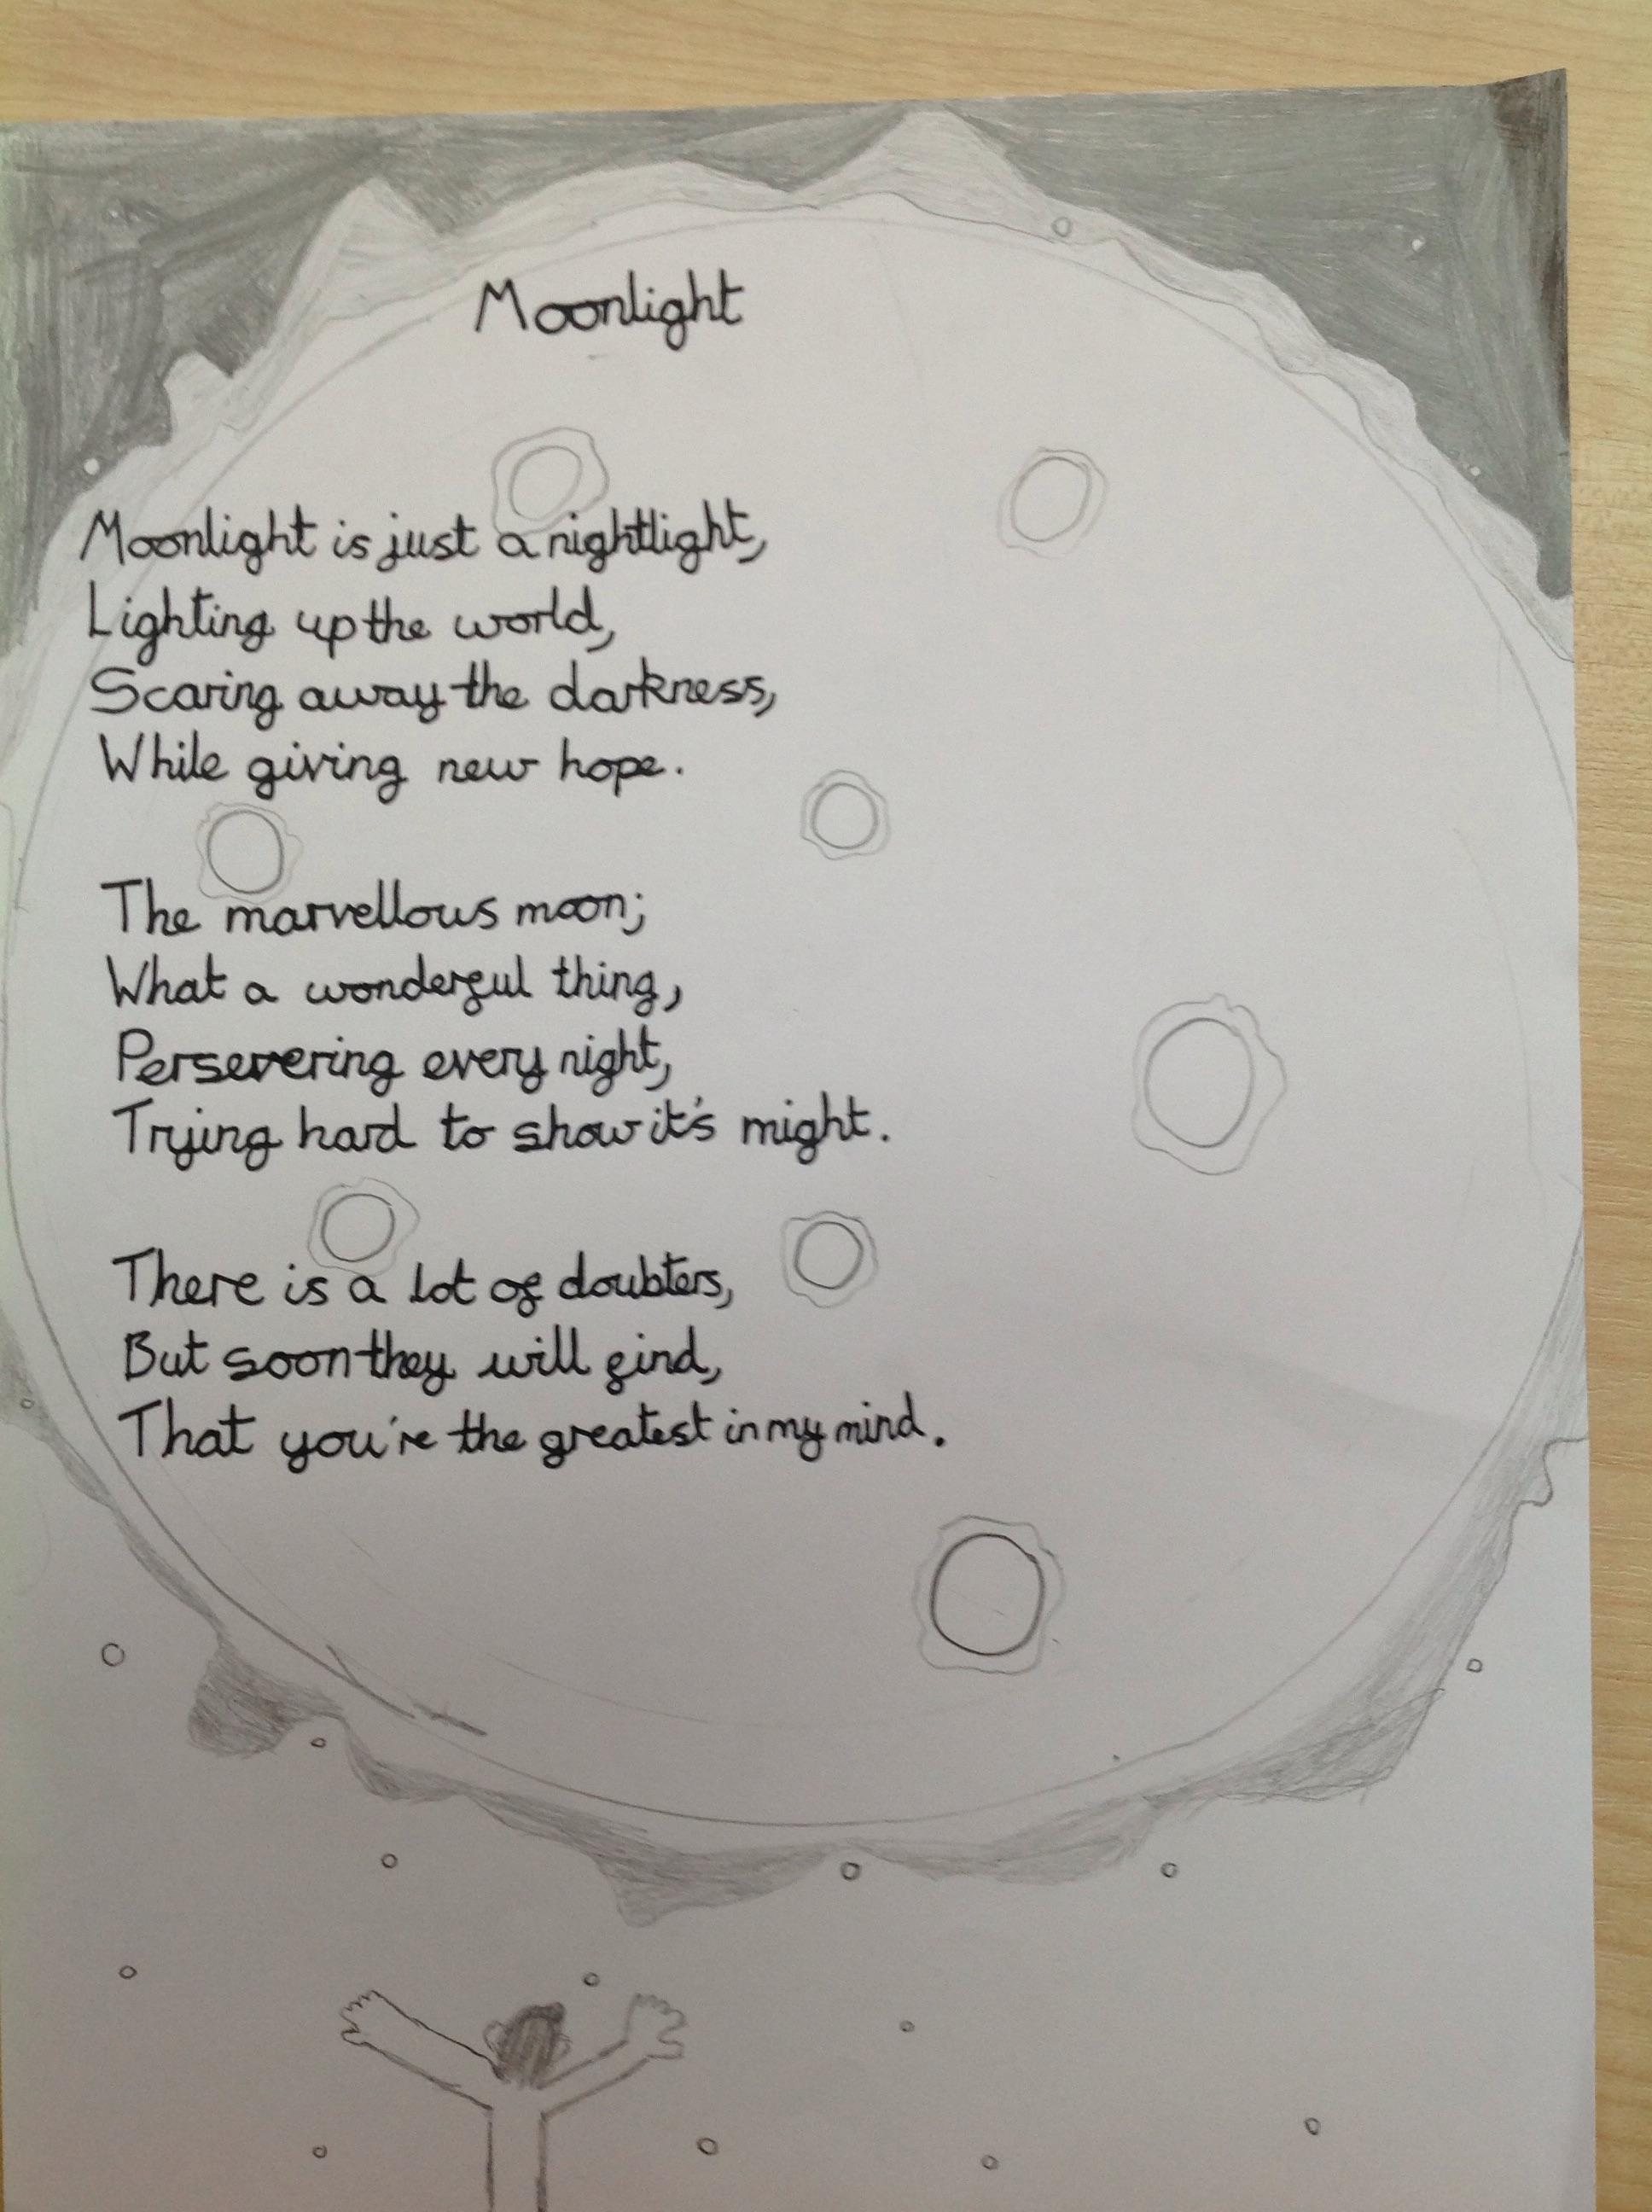 Moonlight
Moonlight is just a nightlight,
Lighting up the world,
Scaring away the darkness,
While giving new hope.
The marvellous moon;
What a wonderful thing,
Persevering every night,
Trying hard to show it's might.
There is a lot of doubters,
But soon they will find,
That you're the greatest in my mind.